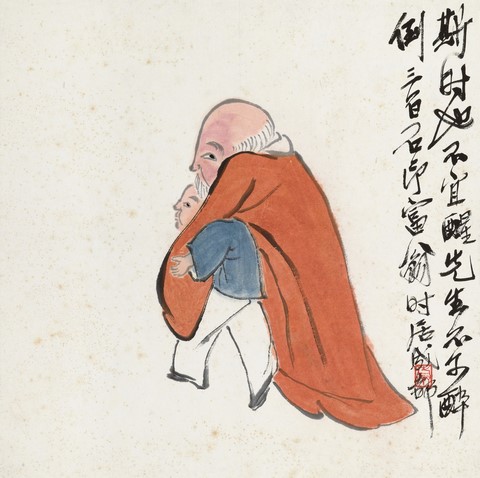 斯时也不宜醒先生不醉
倒三百石印富翁时居成都